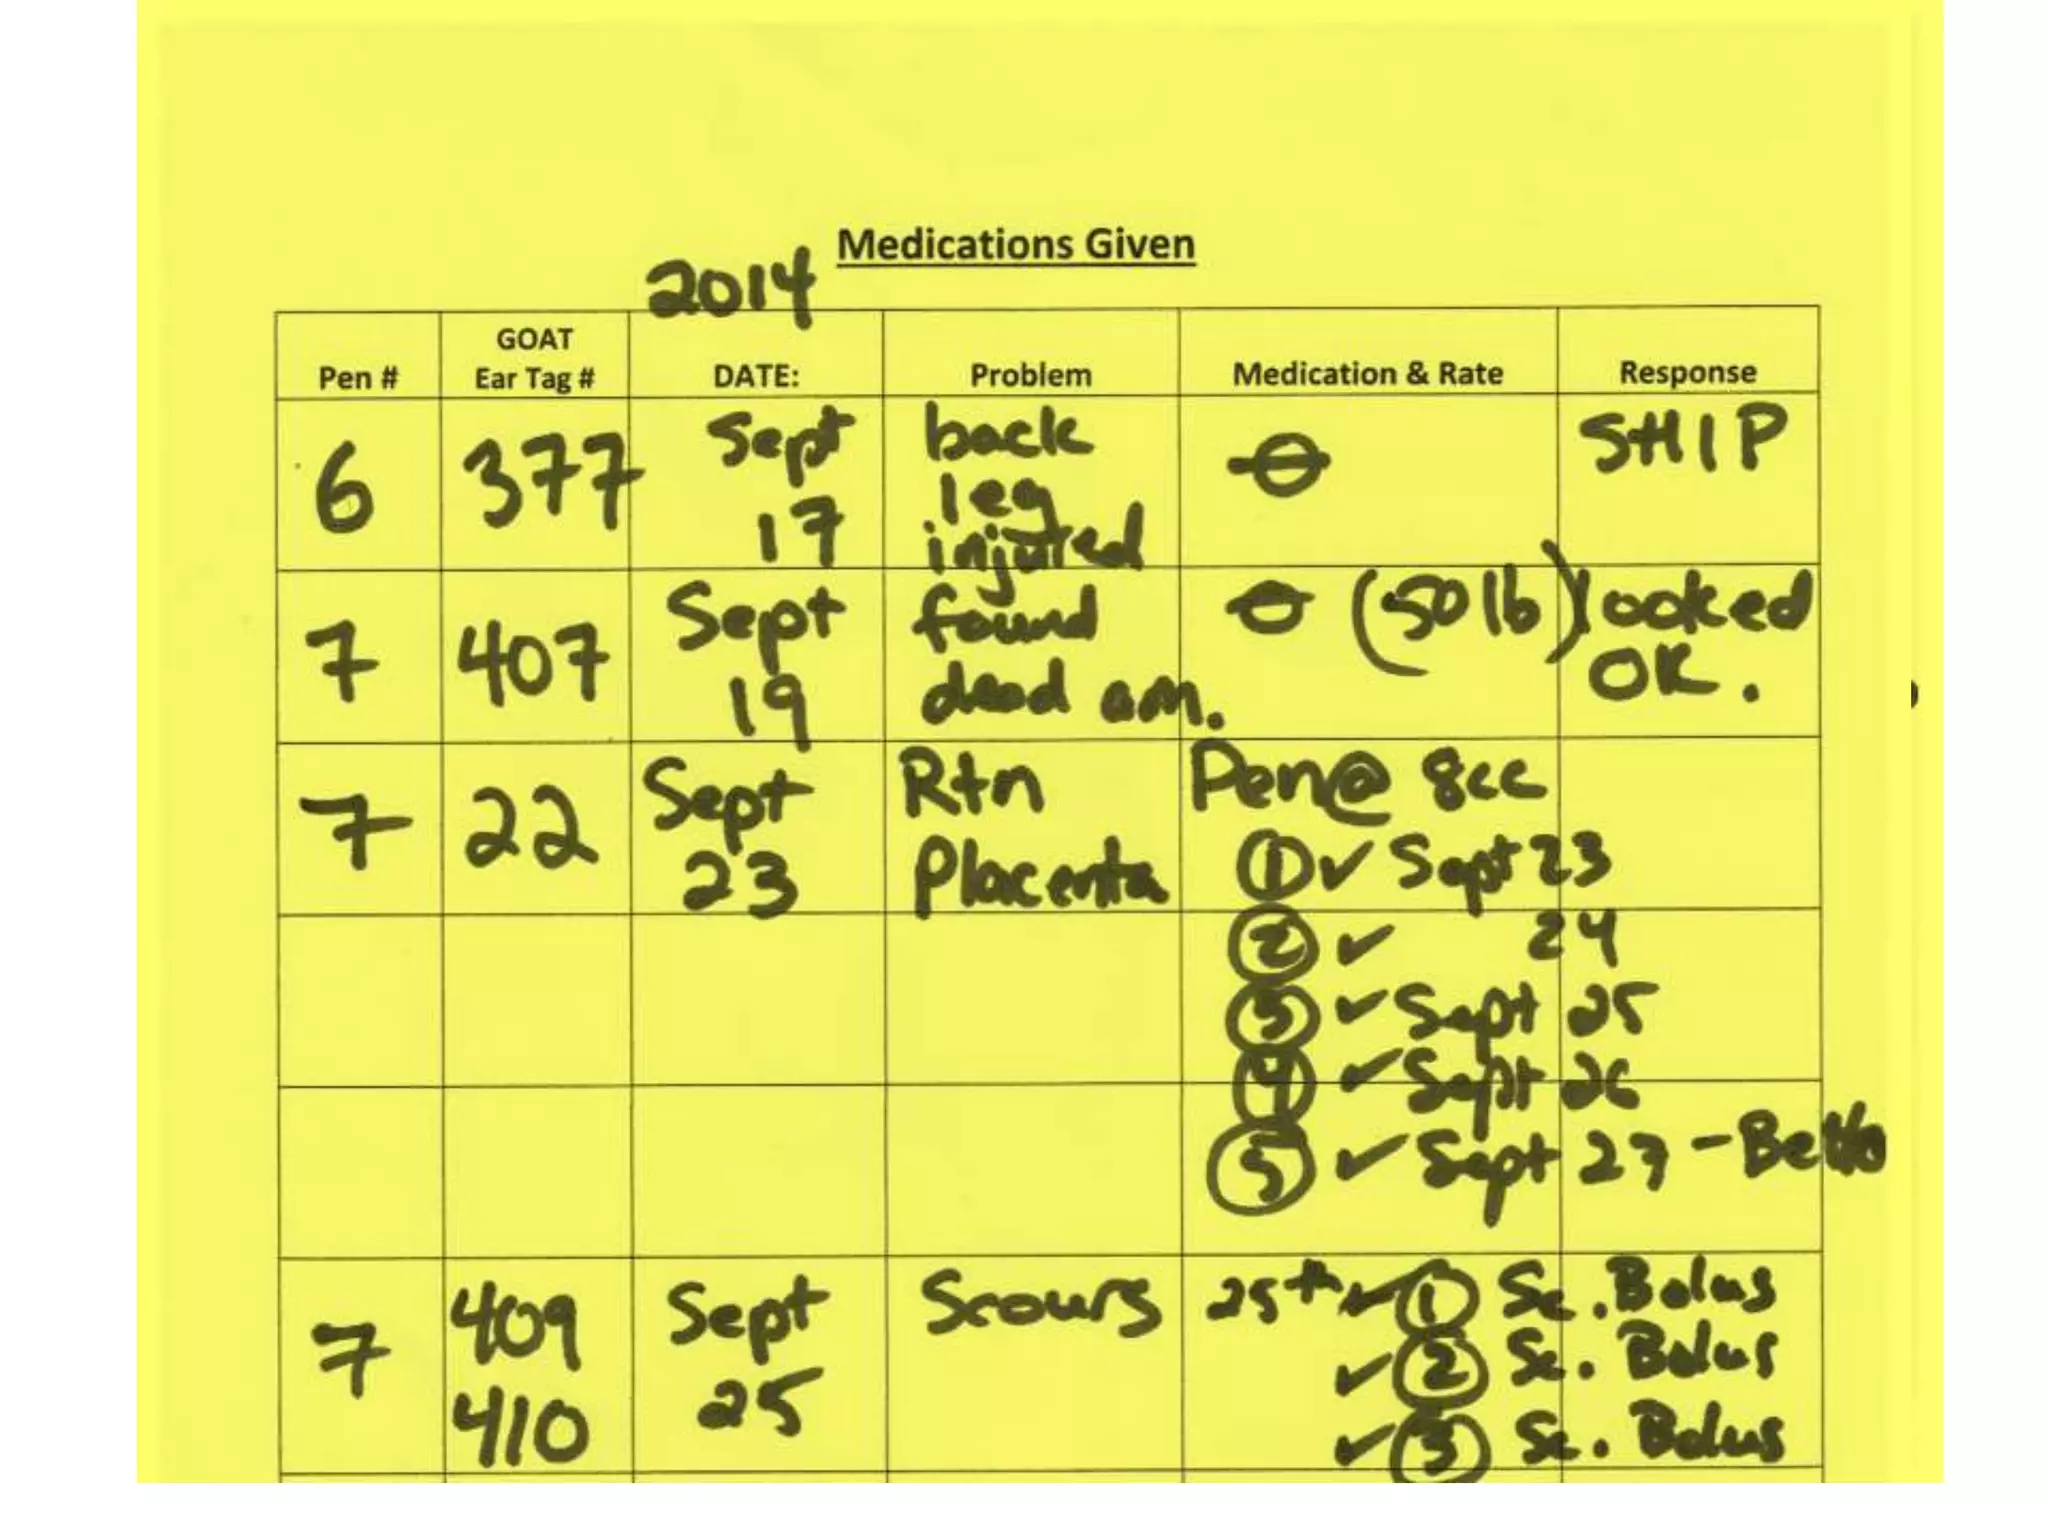 Medications Given
2014
Pen # GOAT Ear Tag # DATE: Problem Medication & Rate Response
6 377 Sept 17 back leg injured SHIP
7 407 Sept 19 found dead am. (50 lb) looked OK.
7 22 Sept 23 Rtn Placenta Pen @ 8cc
1 ✓ Sept 23
2 ✓ 24
3 ✓ Sept 25
4 ✓ Sept 26
5 ✓ Sept 27 -
7 409 410 Sept 25 Scours 25th ✓ 1 Sc. Bolus
✓ 2 Sc. Bolus
✓ 3 Sc. Bolus